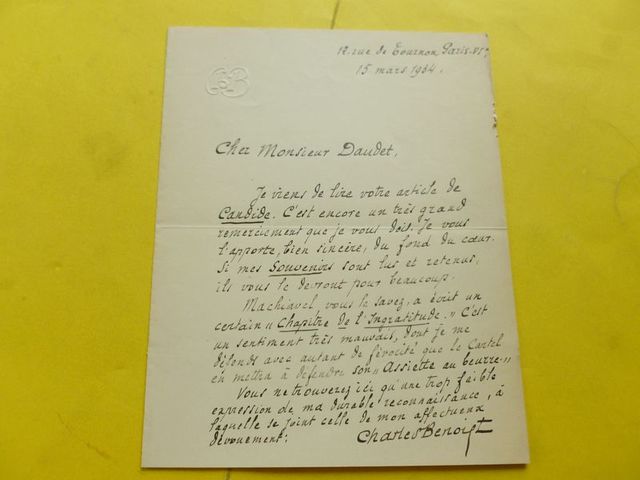 12 rue de Tournon, Paris. VIe
15 mars 1934.
CB
Cher Monsieur Daudet,
Je viens de lire votre article de
Candide. C'est encore un très grand
remerciement que je vous dois. Je vous
l'apporte, bien sincère, du fond du cœur.
Si mes Souvenirs sont lus et retenus,
ils vous le devront pour beaucoup.
Machiavel, vous le savez, a écrit un
certain « Chapitre de l'Ingratitude. » C'est
un sentiment très mauvais, dont je me
défends avec autant de férocité que le Cartel
en mettra à défendre son « Assiette au beurre. »
Vous ne trouverez ici qu'une trop faible
expression de ma durable reconnaissance, à
laquelle se joint celle de mon affectueux
dévouement:
Charles Benoist